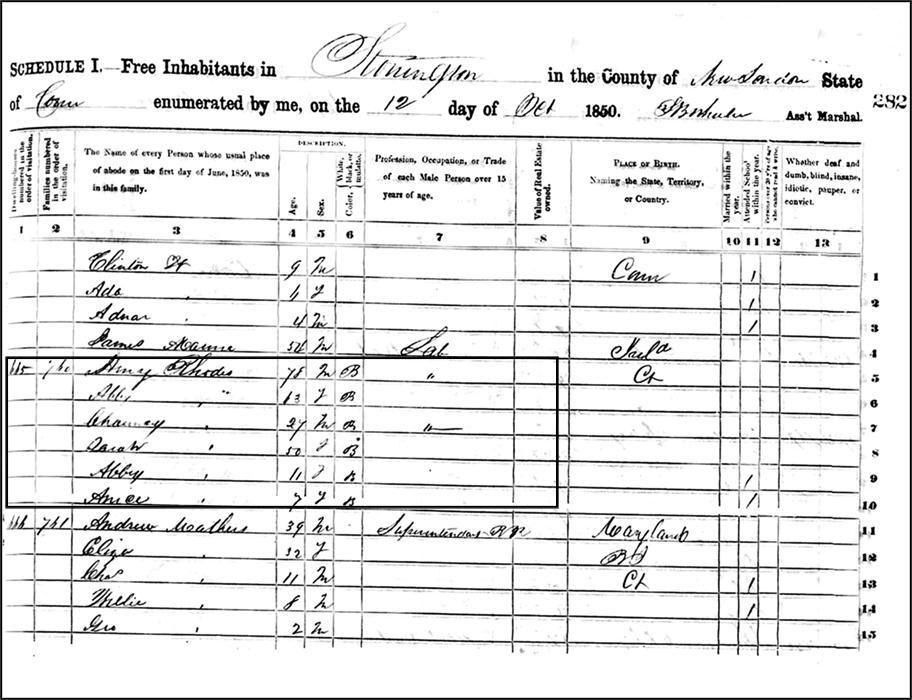 SCHEDULE I.—Free Inhabitants in Stonington in the County of New London State
of Conn enumerated by me, on the 12 day of Oct 1850. Ass't Marshal.
282
Dwelling-houses numbered in the order of visitation.
Families numbered in the order of visitation.
The Name of every Person whose usual place of abode on the first day of June, 1850, was in this family.
DESCRIPTION.
Age.
Sex.
Color, White, black, or mulatto.
Profession, Occupation, or Trade of each Male Person over 15 years of age.
Value of Real Estate owned.
PLACE OF BIRTH. Naming the State, Territory, or Country.
Married within the year.
Attended School within the year.
Persons over 20 y'rs of age who cannot read & write.
Whether deaf and dumb, blind, insane, idiotic, pauper, or convict.
1 2 3 4 5 6 7 8 9 10 11 12 13
Clinton 9 M Conn 1 1
Ada " F 1 2
" 4 M 1 3
James M Lab 4
Rhodes 78 M B " Ct 5
Abby " 63 F B 6
Chauncey " 27 M B " 7
Sarah " 50 F B 8
Abby " 11 F B 1 9
" 7 F B 1 10
761 Andrew Mathews 39 M Superintendent RR Maryland 11
Eliza " 32 F RI 12
Chas " 11 M Ct 1 13
Willie " 8 M 1 14
Geo " 2 M 15